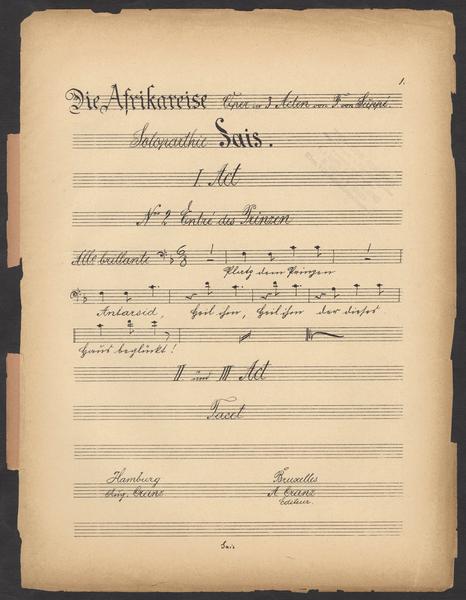 1.
Die Afrikareise Oper in 3 Acten von F. von Suppé.
Soloparthie Sais.
I. Act
Nro 2 Entré des Prinzen
Allo brillante
Platz dem Prinzen
Antarsid, Heil ihm, Heil ihm der dieses
Haus beglückt!
II. und III. Act
Tacet
Hamburg Bruxelles
Aug. Cranz A. Cranz
Editeur.
Sais